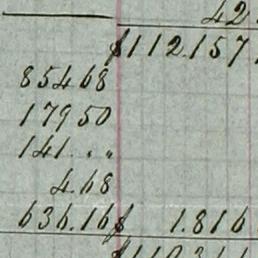 42
$112.157
854.68
179.50
141. „ „
4.68
636.16 $ 1.816